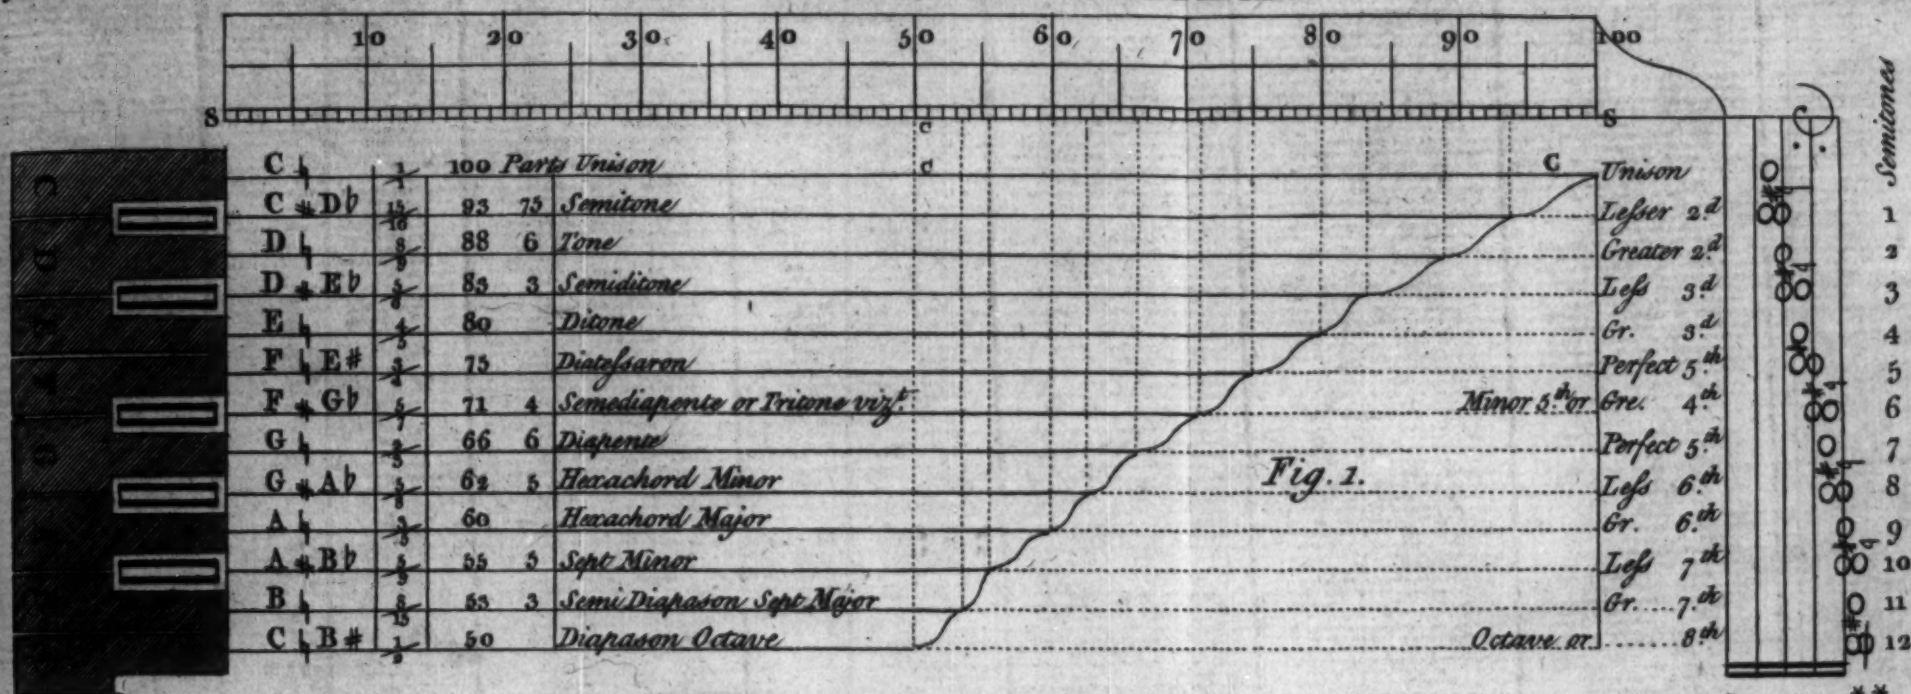 10 20 30 40 50 60 70 80 90 100
S c S
C ♮ 1/1 100 Parts Unison c C Unison
C # D♭ 15/16 93 75 Semitone Leſser 2.d 1
D ♮ 8/9 88 6 Tone Greater 2.d 2
D # E♭ 5/6 83 3 Semiditone Leſs 3.d 3
E ♮ 4/5 80 Ditone Gr. 3.d 4
F ♮ E# 3/4 75 Diateſsaron Perfect 5.th 5
F # G♭ 5/7 71 4 Semediapente or Tritone vizt. Minor 5.th or Gre. 4.th 6
G ♮ 2/3 66 6 Diapente Perfect 5.th 7
G # A♭ 5/8 62 5 Hexachord Minor Leſs 6.th 8
A ♮ 3/5 60 Hexachord Major Gr. 6.th 9
A # B♭ 5/9 55 5 Sept Minor Leſs 7.th 10
B ♮ 8/15 53 3 Semi Diapason Sept Major Gr. 7.th 11
C ♮ B# 1/2 50 Diapason Octave Octave or 8.th 12
Fig. 1.
Semitones
C
D
G